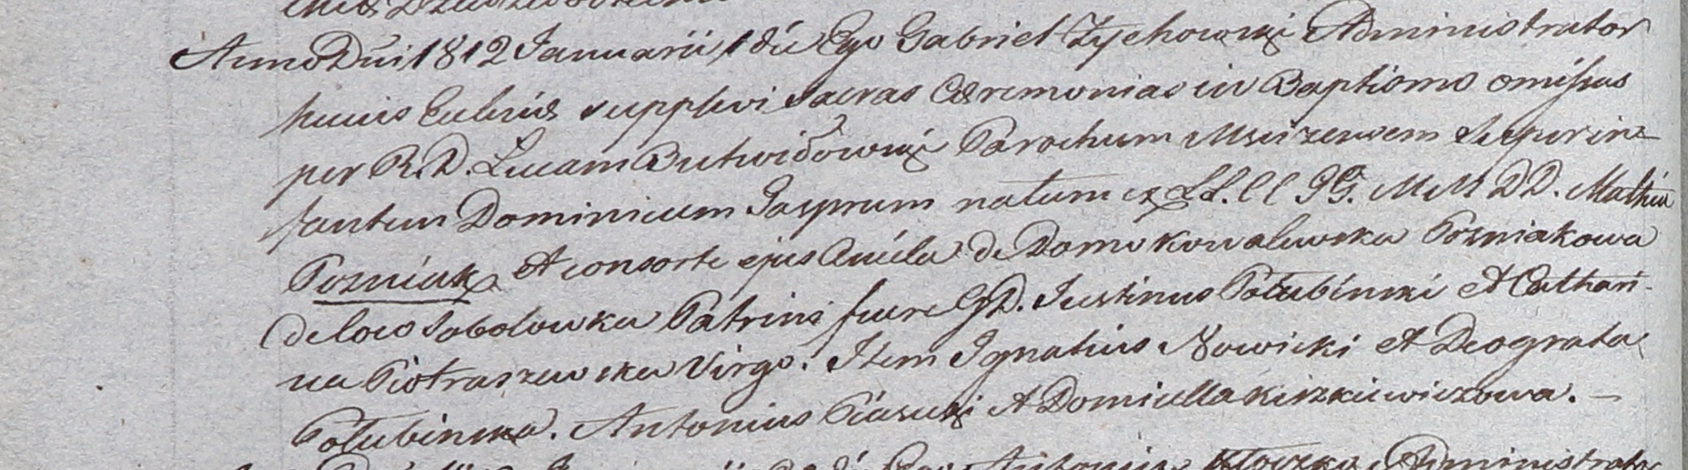 Anno Dni 1812 Januarii 1 die Ego Gabriel Zychowski Administrator
hujus Eccłesiæ supplevi Sacras Cæremonias in Baptismo omissas
per R. D. Lucam Butwidowicz Parochum super in=
fantem Dominicum Jasprum natum ex LL. CC. GG. MM. DD. Mathia
Pozniak Et consorte ejus Aniela de Domo Kowalewska Pozniakowa
de loco Sobolowka Patrini fuere GD. Justinus Połubinski Et Cathari-
na Piotraszewska Virgo. Item Ignatius Nowicki Et Deograta
Połubinska. Antonius Piasecki Et Domicella Kiszkiewiczowa. —
Antonius Administrator